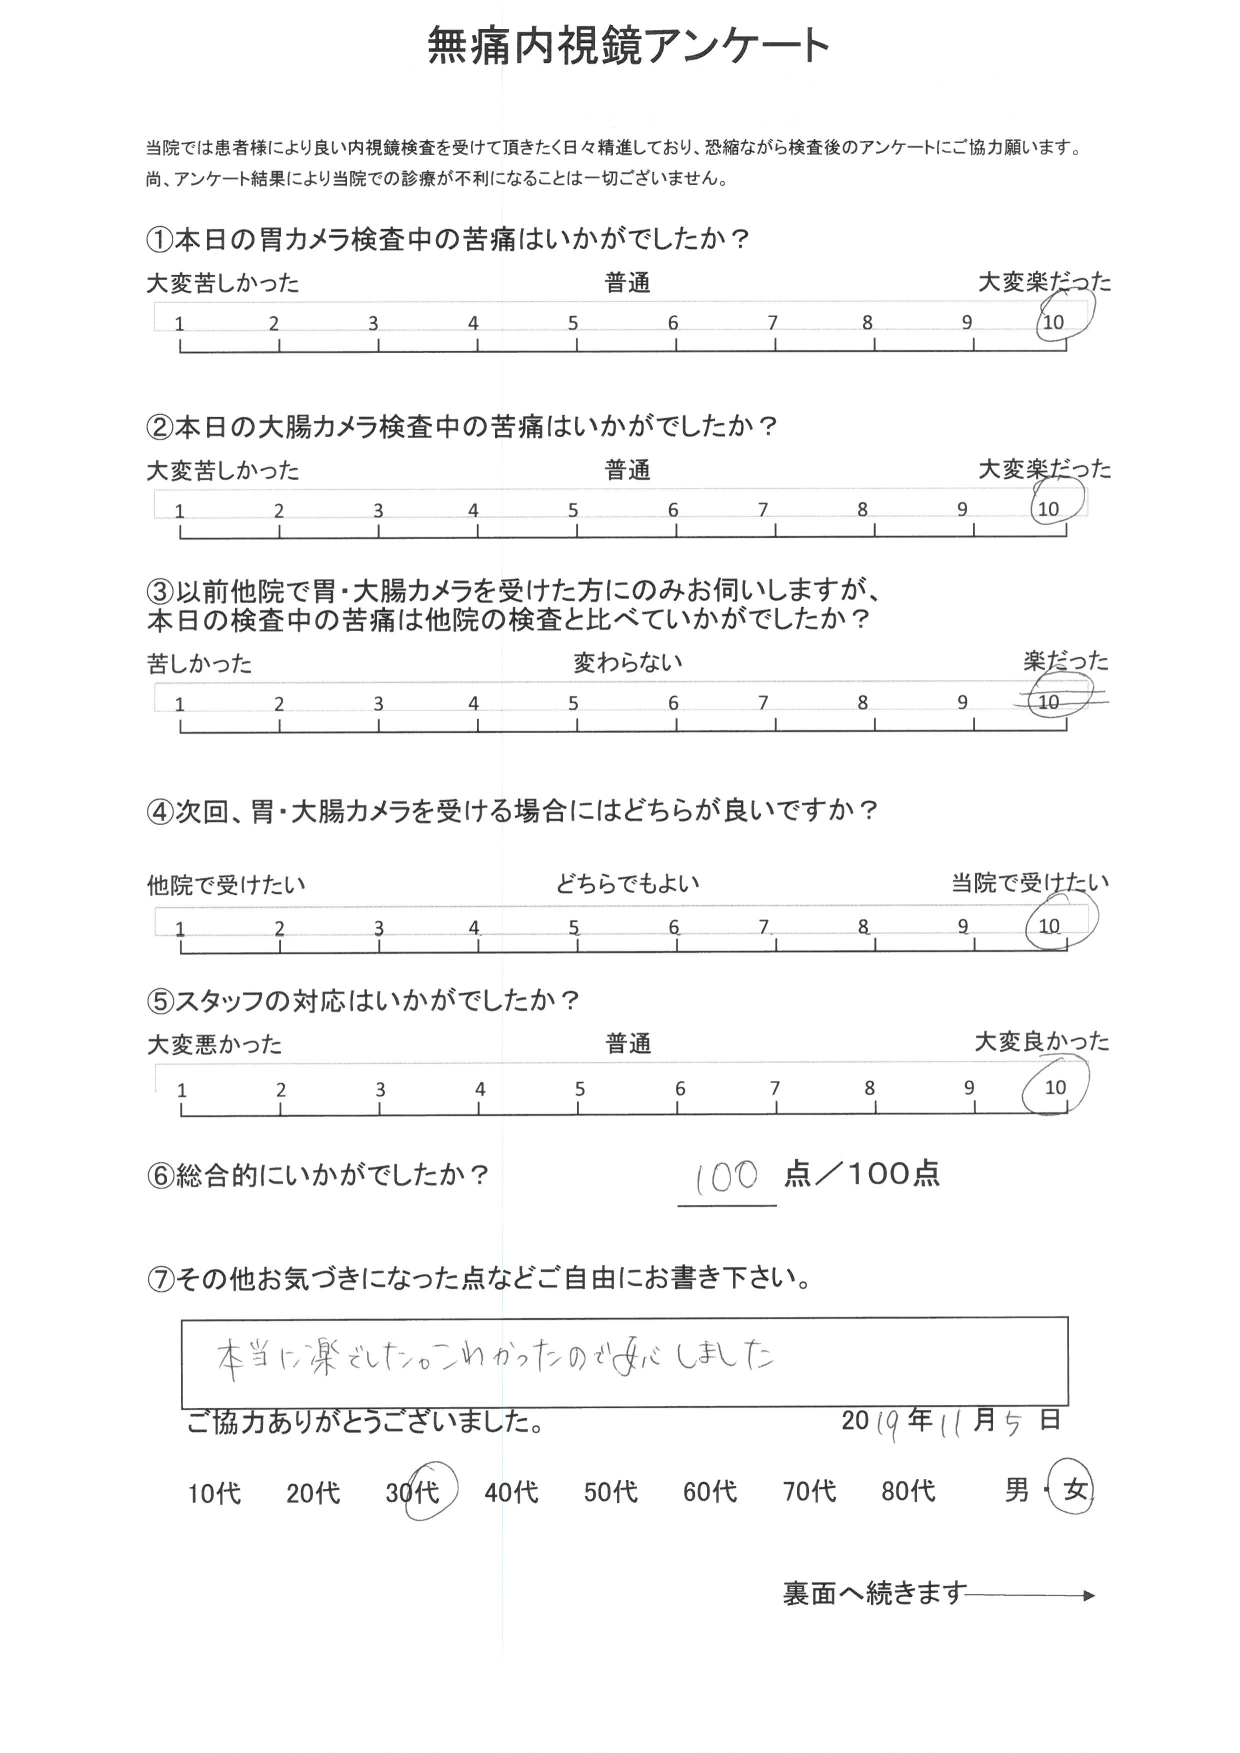 無痛内視鏡アンケート
当院では患者様により良い内視鏡検査を受けて頂きたく日々精進しており、恐縮ながら検査後のアンケートにご協力願います。
尚、アンケート結果により当院での診療が不利になることは一切ございません。
①本日の胃カメラ検査中の苦痛はいかがでしたか？
大変苦しかった 普通 大変楽だった
1 2 3 4 5 6 7 8 9 10
②本日の大腸カメラ検査中の苦痛はいかがでしたか？
大変苦しかった 普通 大変楽だった
1 2 3 4 5 6 7 8 9 10
③以前他院で胃・大腸カメラを受けた方にのみお伺いしますが、
本日の検査中の苦痛は他院の検査と比べていかがでしたか？
苦しかった 変わらない 楽だった
1 2 3 4 5 6 7 8 9 10
④次回、胃・大腸カメラを受ける場合にはどちらが良いですか？
他院で受けたい どちらでもよい 当院で受けたい
1 2 3 4 5 6 7 8 9 10
⑤スタッフの対応はいかがでしたか？
大変悪かった 普通 大変良かった
1 2 3 4 5 6 7 8 9 10
⑥総合的にいかがでしたか？ 100 点／100点
⑦その他お気づきになった点などご自由にお書き下さい。
本当に楽でした。こわかったので安心しました
ご協力ありがとうございました。 2019年11月5日
10代 20代 30代 40代 50代 60代 70代 80代 男・女
裏面へ続きます